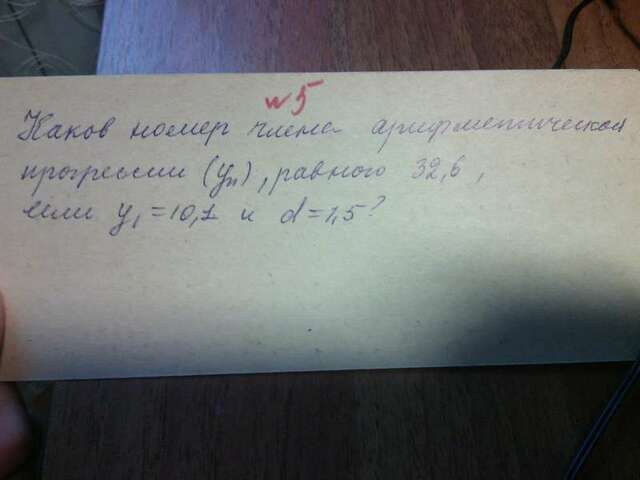 №5
Каков номер члена арифметической
прогрессии (yₙ), равного 32,6,
если y₁=10,1 и d=1,5?